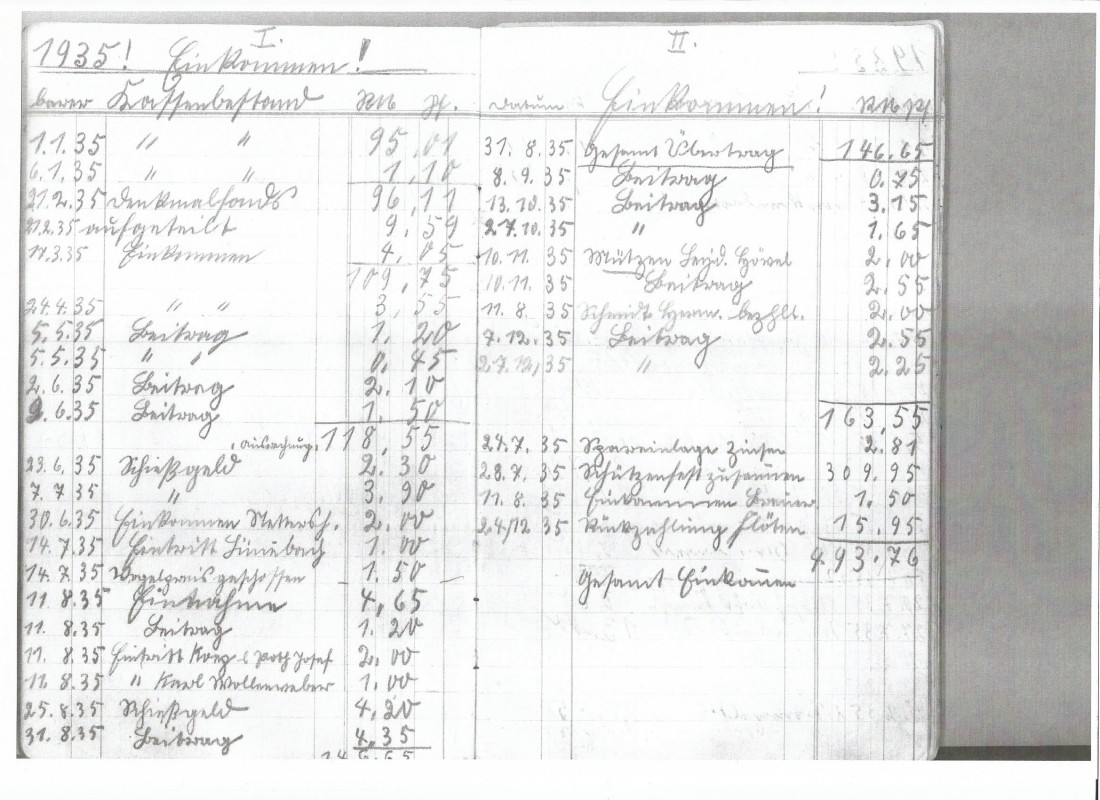 I.
1935! Einkommen!
barer Kassenbestand RM Pf.
1.1.35 " " 95,01
6.1.35 " " 1,10
21.2.35 Denkmalfonds 96,11
21.2.35 aufgeteilt 9,59
17.3.35 Einkommen 4,05
109,75
24.4.35 " " 3,55
5.5.35 Beitrag 1.20
5.5.35 " " 0.45
2.6.35 Beitrag 2.10
9.6.35 Beitrag 1.50
118,55
23.6.35 Schießgeld 2.30
7.7.35 " 3.90
30.6.35 Einkommen 2.00
14.7.35 Eintritt Lünebach 1.00
14.7.35 Vogelpreis geschossen 1.50
11.8.35 Einnahme 4,65
11.8.35 Beitrag 1.20
11.8.35 Eintritt Josef 2.00
11.8.35 " Karl Wollenweber 1.00
25.8.35 Schießgeld 4,20
31.8.35 Beitrag 4,35
II.
Datum Einkommen! RM Pf
31.8.35 Gesamt Übertrag 146.65
8.9.35 Beitrag 0.75
13.10.35 Beitrag 3.15
27.10.35 " 1.65
10.11.35 Mützen 2,00
10.11.35 Beitrag 2.55
11.8.35 Schmidt Herm. bezhlt. 2.00
7.12.35 Beitrag 2.55
27.12.35 " 2.25
163,55
24.7.35 Spareinlage Zinsen 2.81
28.7.35 Schützenfest zusammen 309.95
11.8.35 Einkommen 1.50
24/12.35 Rückzahlung Flöten 15.95
493.76
Gesamt Einkommen